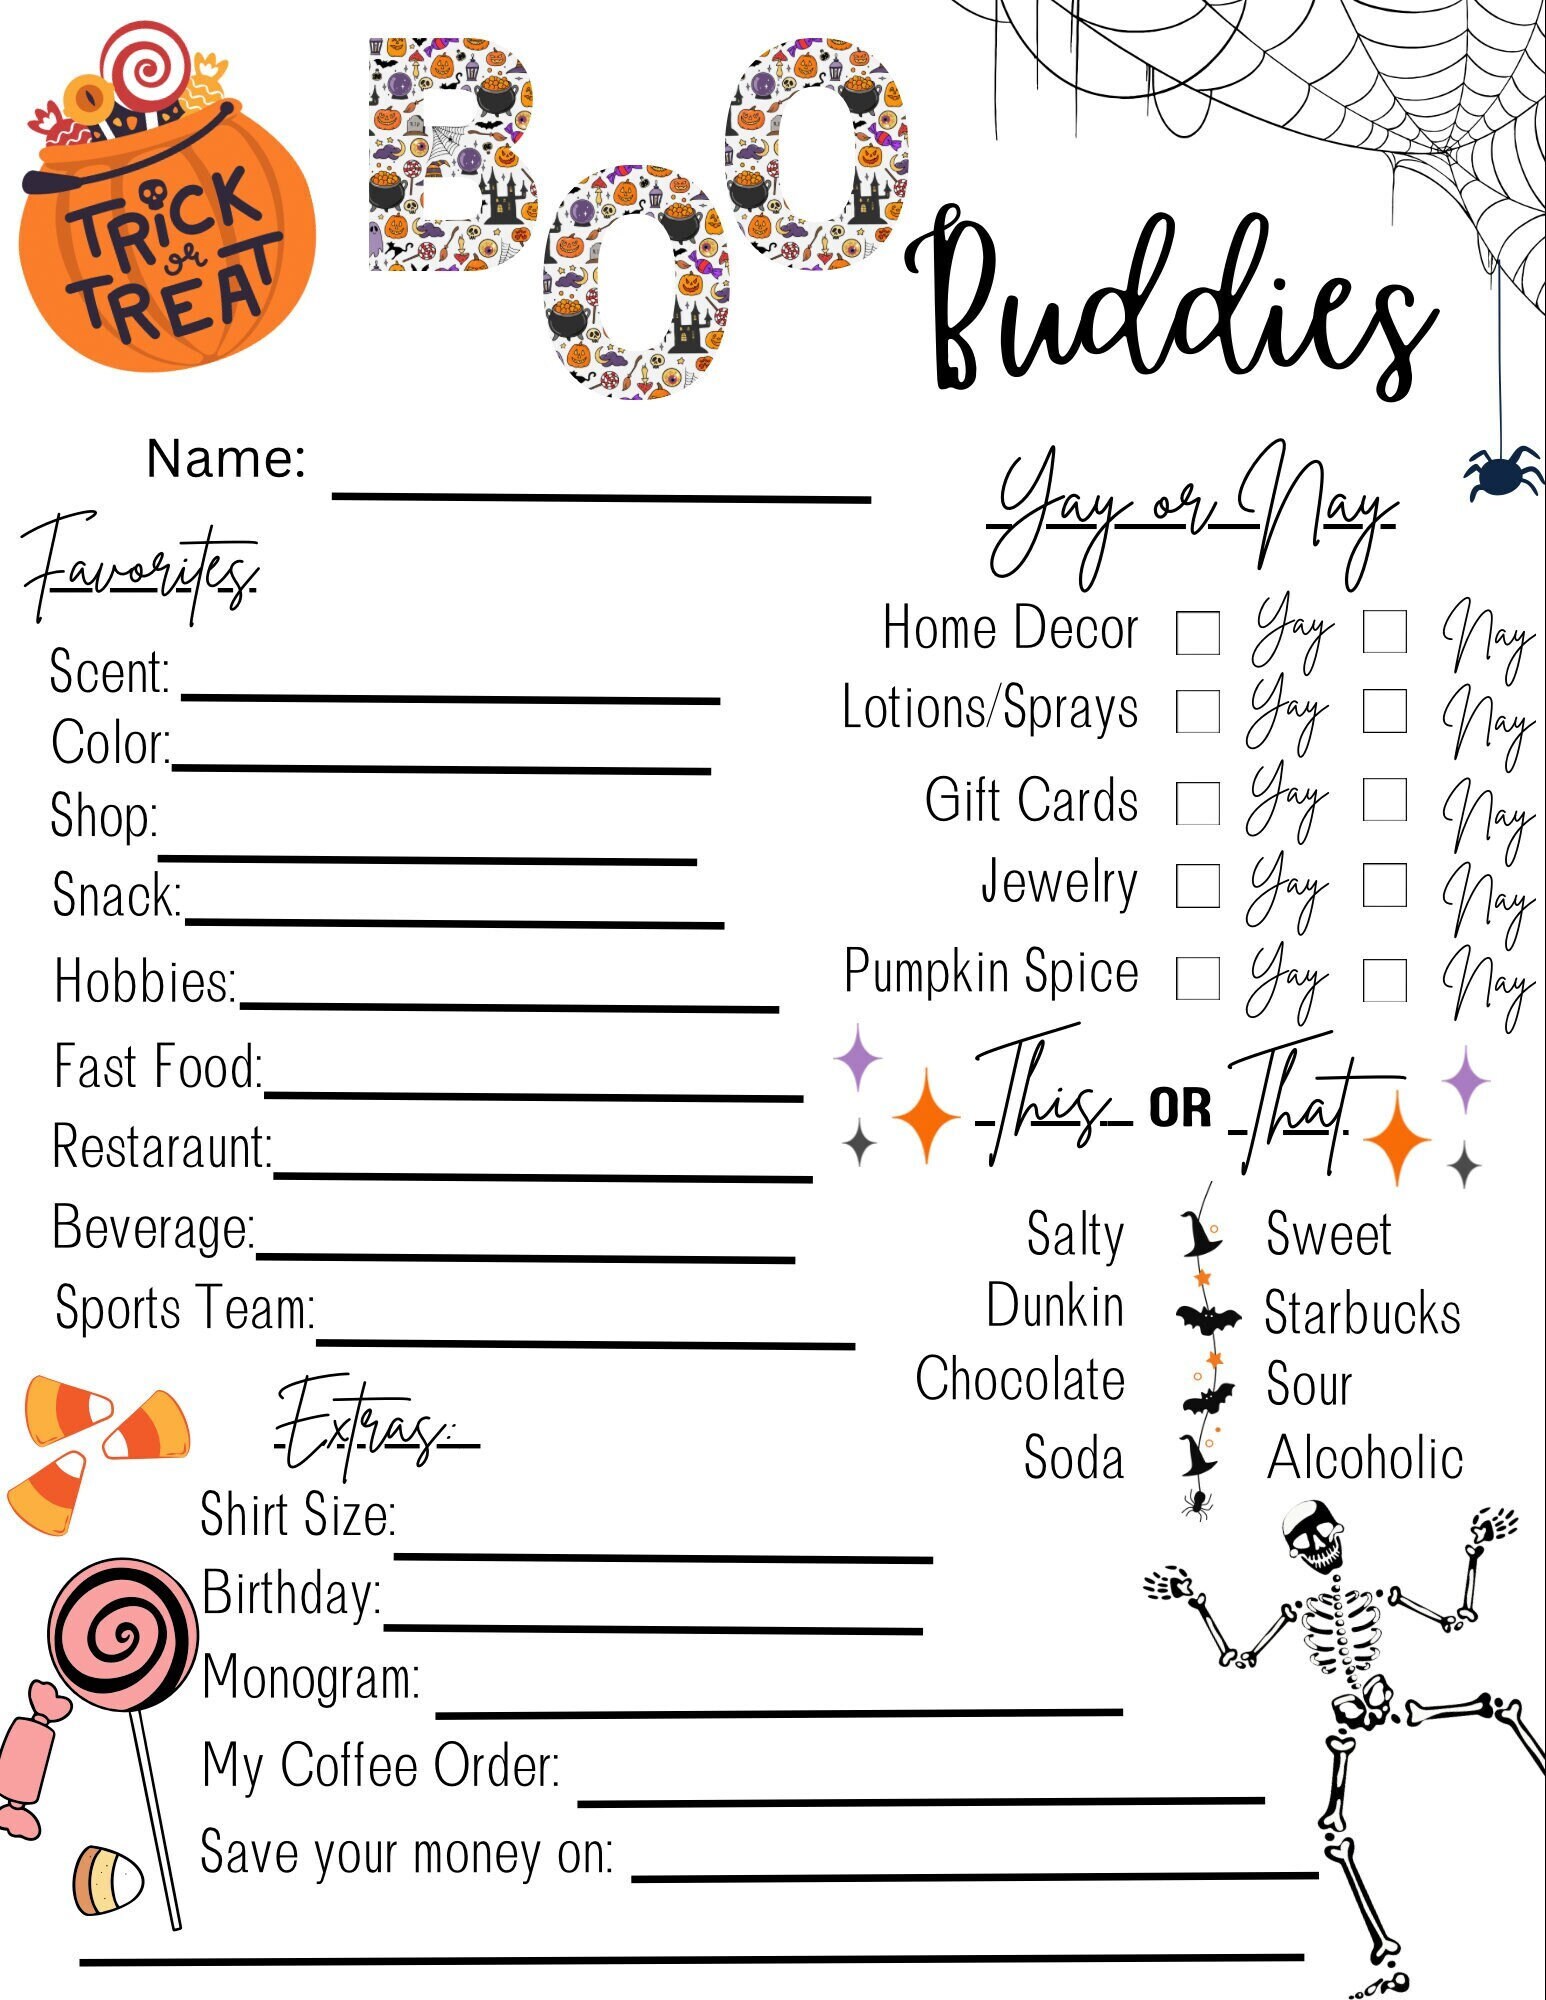 TRICK
or
TREAT
BOO Buddies
Name:
Favorites
Scent:
Color:
Shop:
Snack:
Hobbies:
Fast Food:
Restaraunt:
Beverage:
Sports Team:
Yay or Nay
Home Decor Yay Nay
Lotions/Sprays Yay Nay
Gift Cards Yay Nay
Jewelry Yay Nay
Pumpkin Spice Yay Nay
This OR That
Salty Sweet
Dunkin Starbucks
Chocolate Sour
Soda Alcoholic
Extras:
Shirt Size:
Birthday:
Monogram:
My Coffee Order:
Save your money on: